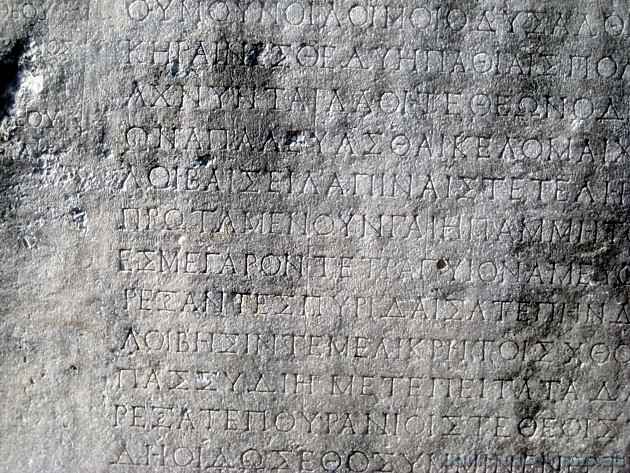 ΘΥΜΟΥΝΟΙΛΟΙΜΟΙΟΔΥΣΑΛΘ
ΚΗΡΑΙΝΕΣΘΕΔΥΗΠΑΘΙΑΙΣΠΟΛ
ΑΧΝΥΗΤΑΓΛΑΟΝΤΕΘΕΩΝΟΔ
ΟΥ ΩΝΑΠΑΛΕΥΑΣΘΑΙΚΕΛΟΜΑΙΧ
ΛΟΙΒΑΙΣΕΙΛΑΠΙΝΑΙΣΤΕΤΕΛΗ
ΠΡΩΤΑΜΕΝΟΥΝΓΑΙΗΙΠΑΜΜΗΤ
ΕΣΜΕΓΑΡΟΝΤΕΤΡΑΓΥΙΟΝΑΜΕ
ΡΕΞΑΝΤΕΣΠΥΡΙΔΑΙΣΑΤΕΠΗΝΔ
ΛΟΙΒΗΣΙΝΤΕΜΕΛΙΚΡΗΤΟΙΣΧΘΟ
ΠΑΣΣΥΔΙΗΜΕΤΕΠΕΙΤΑΤΑΔ
ΡΕΞΑΤΕΠΟΥΡΑΝΙΟΙΣΤΕΘΕΟΙΣ
ΔΗΟΙΔΩΣΕΘΟΣΥΜ